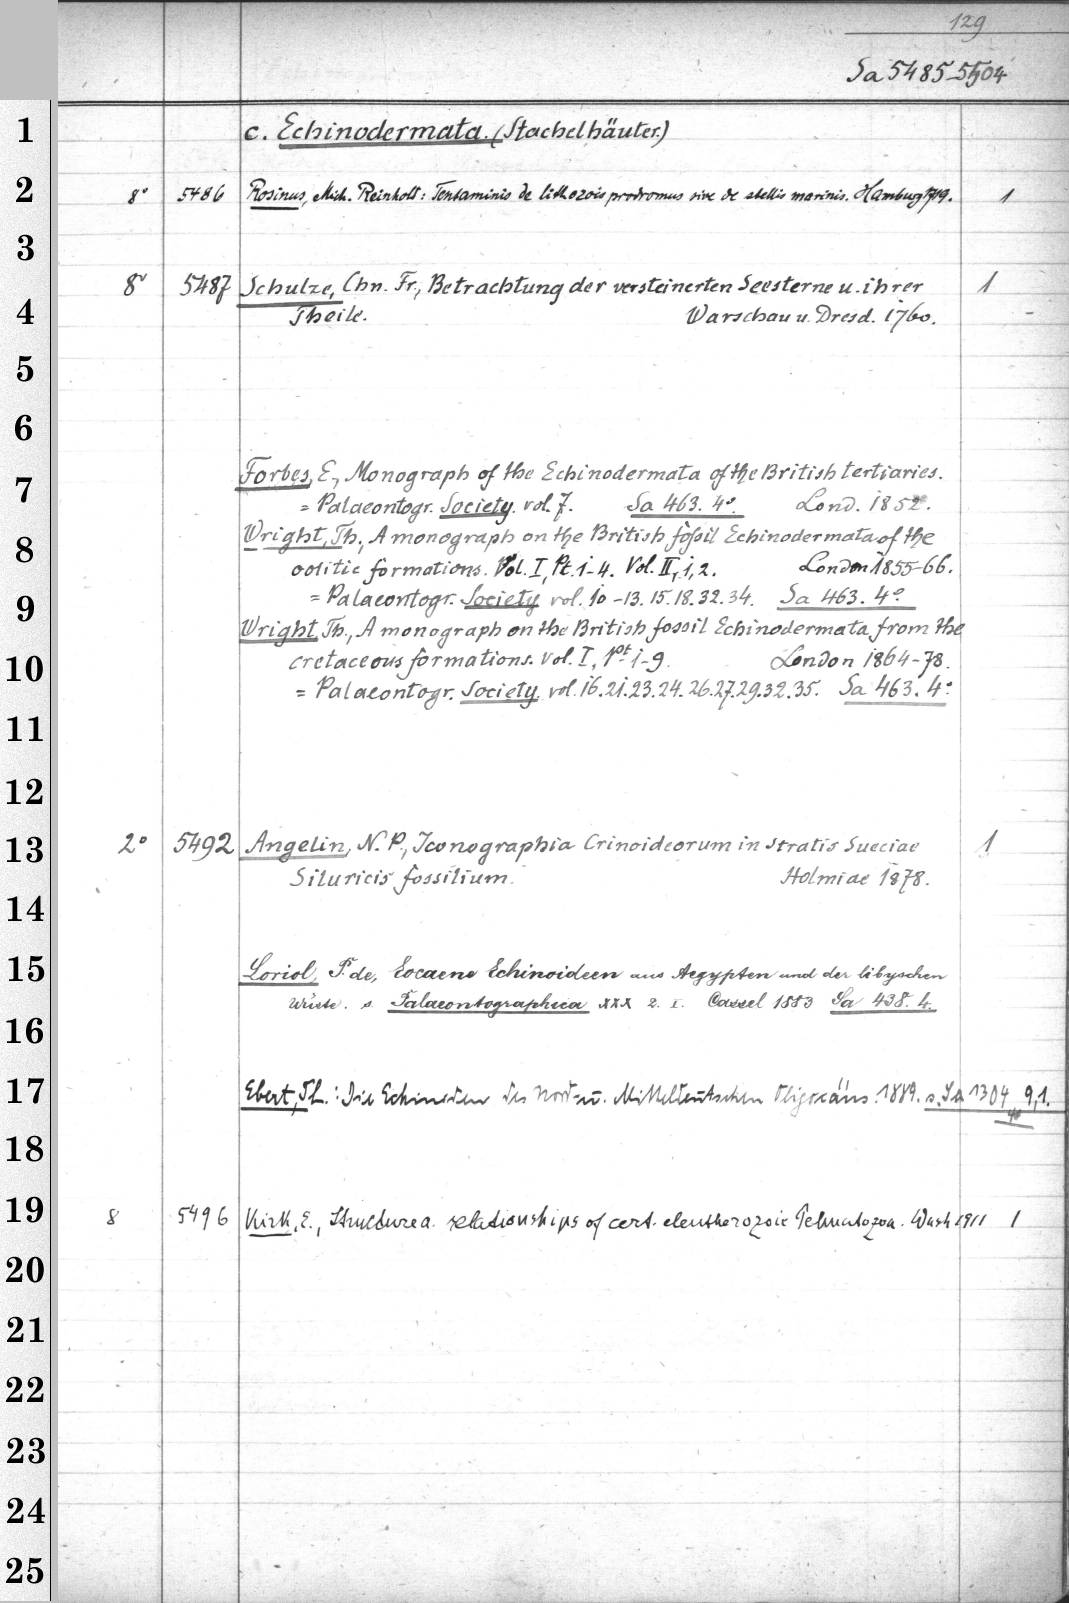 129
Sa 5485-5504
1 c. Echinodermata. (Stachelhäuter.)
2 8° 5486 Rosinus, Mich. Reinhold: Tentaminis de lithozois prodromus sive de stellis marinis. Hamburg 1719. 1
3
8° 5487 Schulze, Chn. Fr., Betrachtung der versteinerten Seesterne u. ihrer 1
4 Theile. Warschau u. Dresd. 1760.
5
6
Forbes, E., Monograph of the Echinodermata of the British tertiaries.
7 = Palaeontogr. Society. vol. 7. Sa 463. 4°. Lond. 1852.
Wright, Th., A monograph on the British fossil Echinodermata of the
8 oolitic formations. Vol. I, Pt. 1-4. Vol. II, 1, 2. London 1855-66.
9 = Palaeontogr. Society vol. 10-13. 15. 18. 32. 34. Sa 463. 4°
Wright, Th., A monograph on the British fossil Echinodermata from the
10 cretaceous formations. Vol. I, Pt. 1-9. London 1864-78.
= Palaeontogr. Society. vol. 16. 21. 23. 24. 26. 27. 29. 32. 35. Sa 463. 4°
11
12
13 2° 5492 Angelin, N. P., Iconographia Crinoideorum in stratis Sueciae 1
Siluricis fossilium. Holmiae 1878.
14
15 Loriol, P. de, Eocaene Echinoideen aus Aegypten und der libyschen
Wüste. s. Palaeontographica XXX 2. I. Cassel 1883 Sa 438. 4.
16
17 Ebert, Th.: Die Echiniden des Nord- u. Mitteldeutschen Oligocäns. 1889. s. Sa 1304 9,1.
4°
18
19 8 5496 Kirk, E., Structure a. relationships of cert. eleutherozoic Pelmatozoa. Wash 1911 1
20
21
22
23
24
25